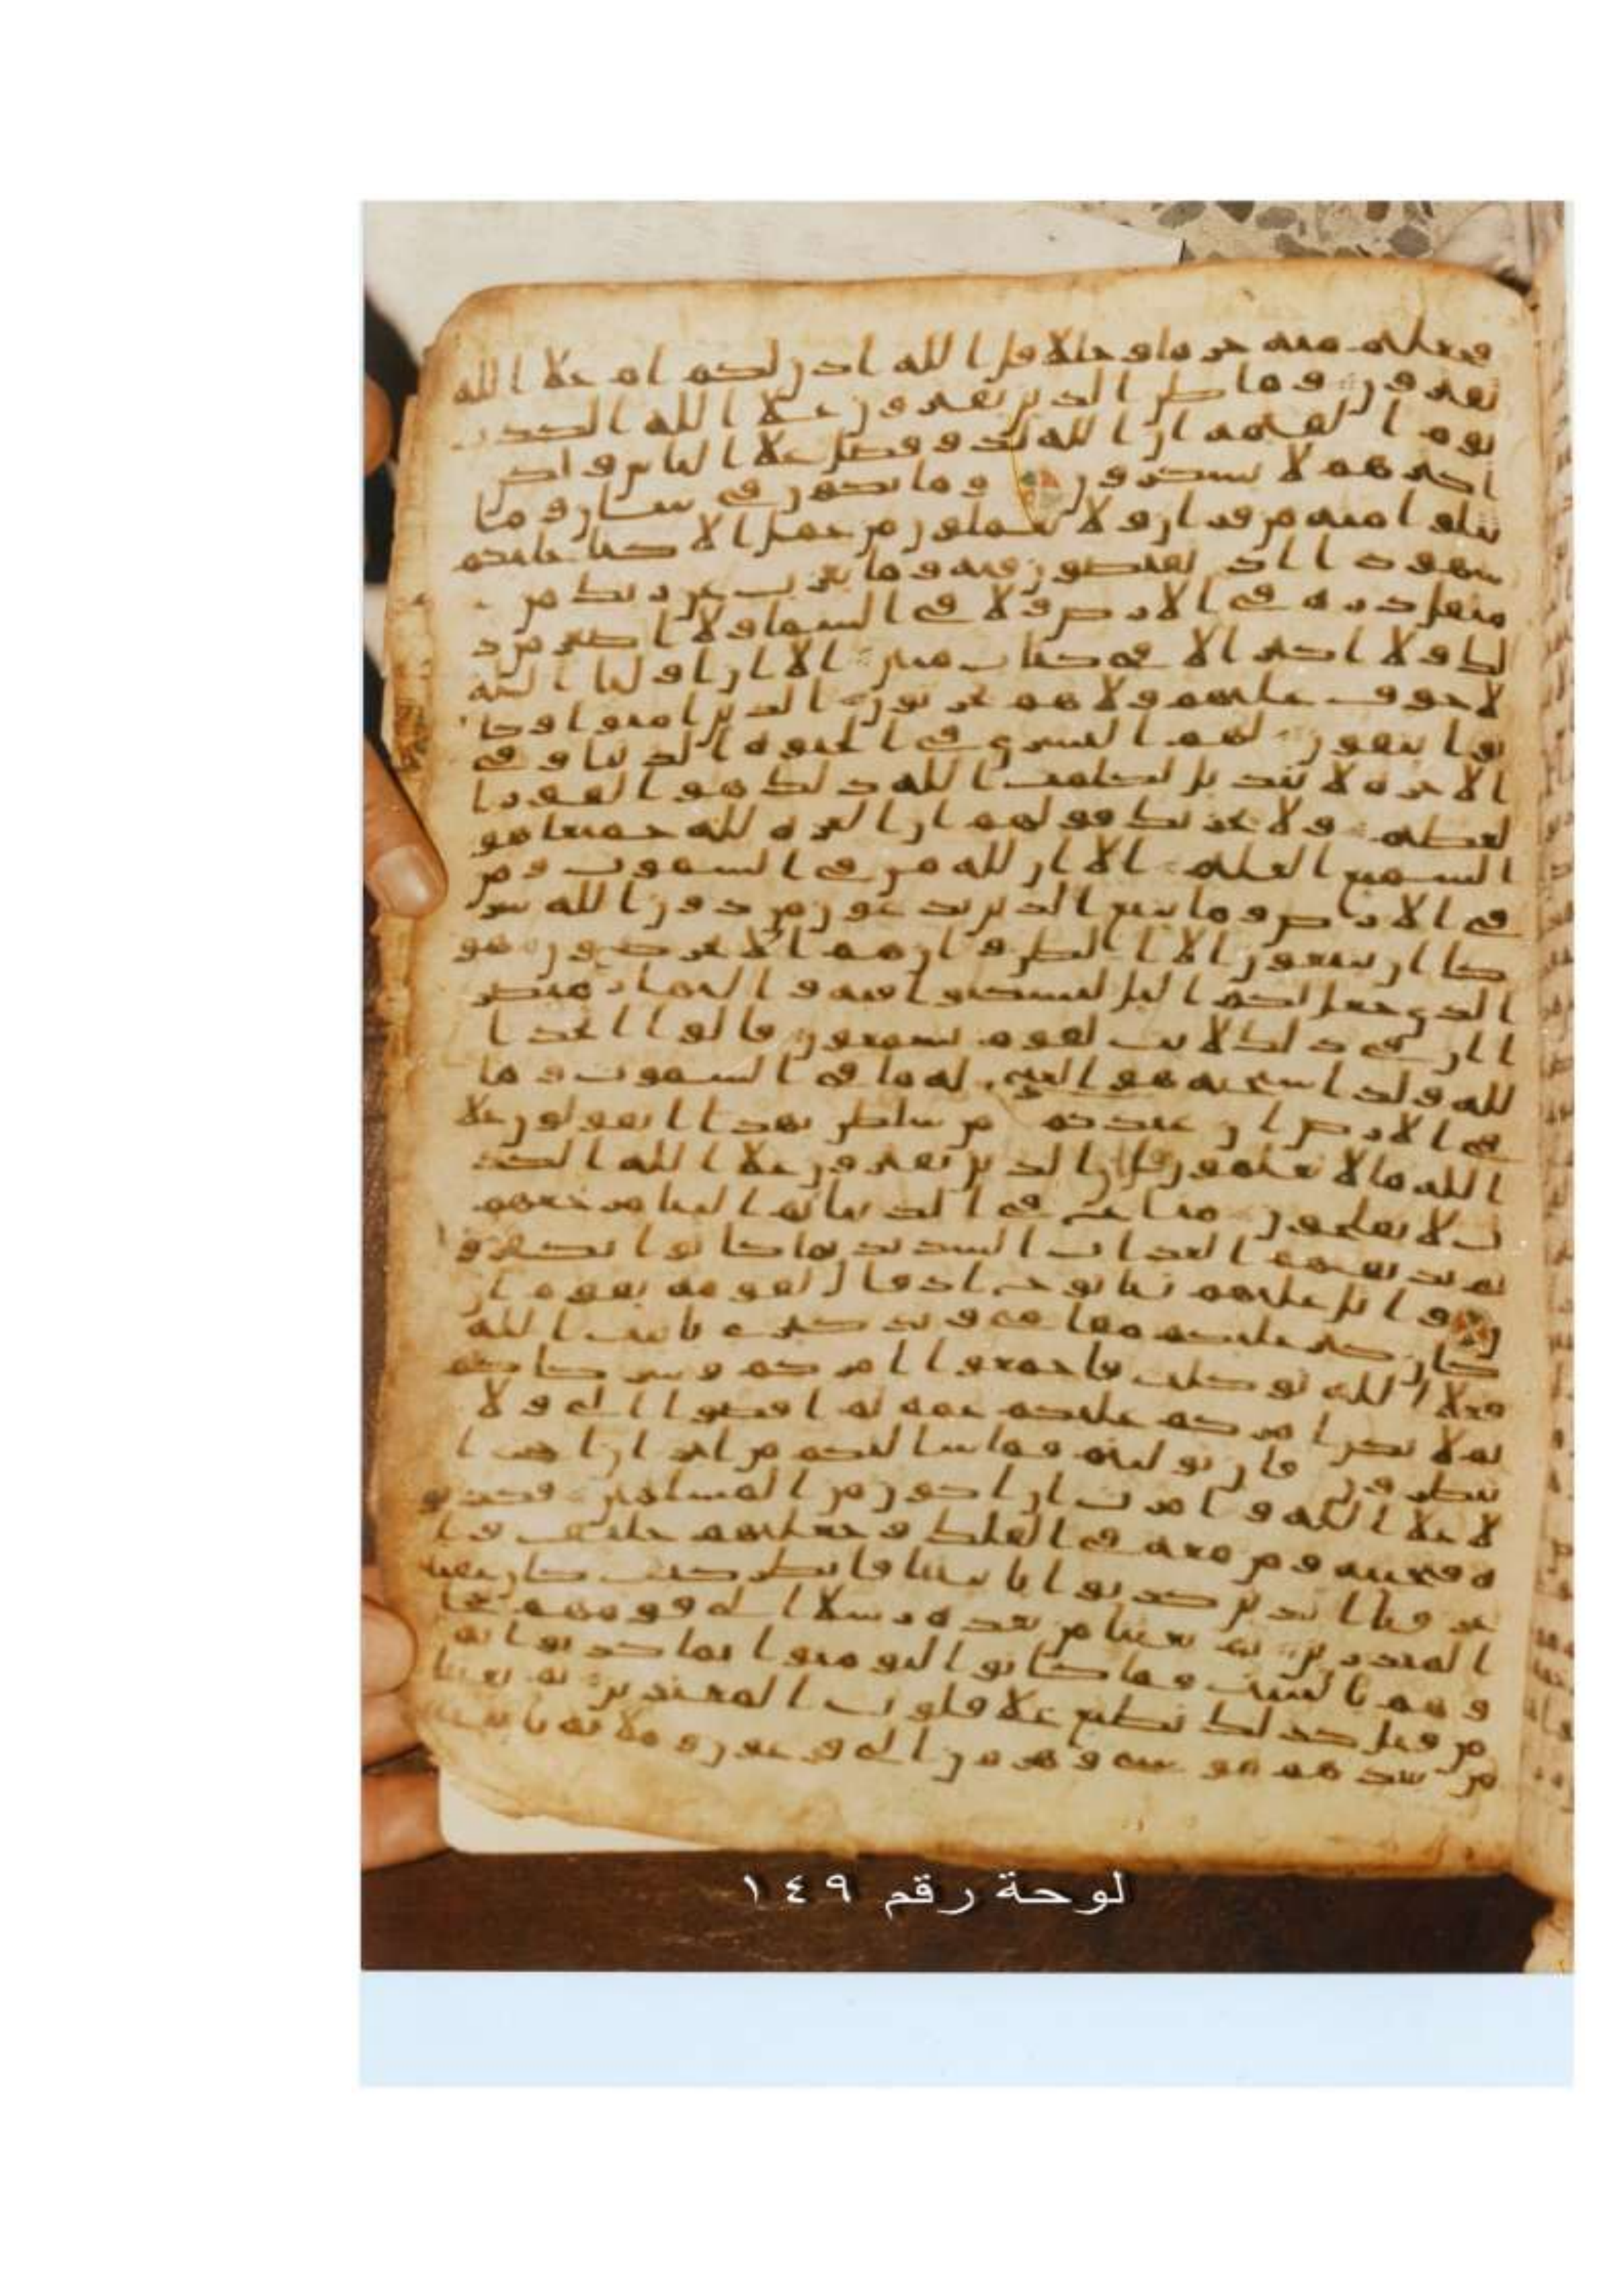 فجعلتم منه حرما وحللا قل ا لله ا ذن لكم ا م علا ا لله
تفترون وما ظن ا لذين يفترون علا ا لله ا لكذب
يوم ا لقيمه ا ن ا لله لذو فضل علا ا لناس ولكن
ا كثرهم لا يشكرون وما تكون في شان وما
تتلوا منه من قران ولا تعملون من عمل ا لا كنا عليكم
شهودا ا ذ تفيضون فيه وما يعزب عن ربك من
مثقل ذره في ا لارض ولا في ا لسما ولا ا صغر من ذ
لك ولا ا كبر ا لا في كتاب مبين ا لا ا ن ا وليا ا لله
لا خوف عليهم ولا هم يحزنون ا لذين ا منوا وكا
نوا يتقون لهم ا لبشرى في ا لحيوه ا لدنيا وفي
ا لاخره لا تبديل لكلمت ا لله ذلك هو ا لفوز ا
لعظيم ولا يحزنك قولهم ا ن ا لعزه لله جميعا هو
ا لسميع ا لعليم ا لا ا ن لله من في ا لسموت ومن
في ا لارض وما يتبع ا لذين يدعون من دون ا لله شر
كا ا ن يتبعون ا لا ا لظن وا ن هم ا لا يخرصون هو
ا لذي جعل لكم ا ليل لتسكنوا فيه وا لنهار مبصر
ا ا ن في ذلك لايت لقوم يسمعون قالوا ا تخذ ا
لله ولدا سبحنه هو ا لغني له ما في ا لسموت وما
في ا لارض ا ن عندكم من سلطن بهذا ا تقولون علا
ا لله ما لا تعلمون قل ا ن ا لذين يفترون علا ا لله ا لكذ
ب لا يفلحون متاع في ا لدنيا ثم ا لينا مرجعهم
ثم نذيقهم ا لعذاب ا لشديد بما كانوا يكفرو
ن وا تل عليهم نبا نوح ا ذ قال لقومه يقوم ا ن
كان كبر عليكم مقامي وتذكيري بايت ا لله
فعلا ا لله توكلت فاجمعوا ا مركم وشركاكم
ثم لا يكن ا مركم عليكم غمه ثم ا قضوا ا لي ولا
تنظرون فان توليتم فما سالتكم من ا جر ا ن ا جري ا
لا علا ا لله وا مرت ا ن ا كون من ا لمسلمين فكذبو
ه فنجينه ومن معه في ا لفلك وجعلنهم خلئف وا
غرقنا ا لذين كذبوا بايتنا فانظر كيف كان عقبه
ا لمنذرين ثم بعثنا من بعده رسلا ا لى قومهم فجا
وهم بالبينت فما كانوا ليومنوا بما كذبوا به
من قبل كذلك نطبع علا قلوب ا لمعتدين ثم بعثنا
من بعدهم موسى وهرون ا لى فرعون وملايه بايتنا
لوحة رقم ١٤٩